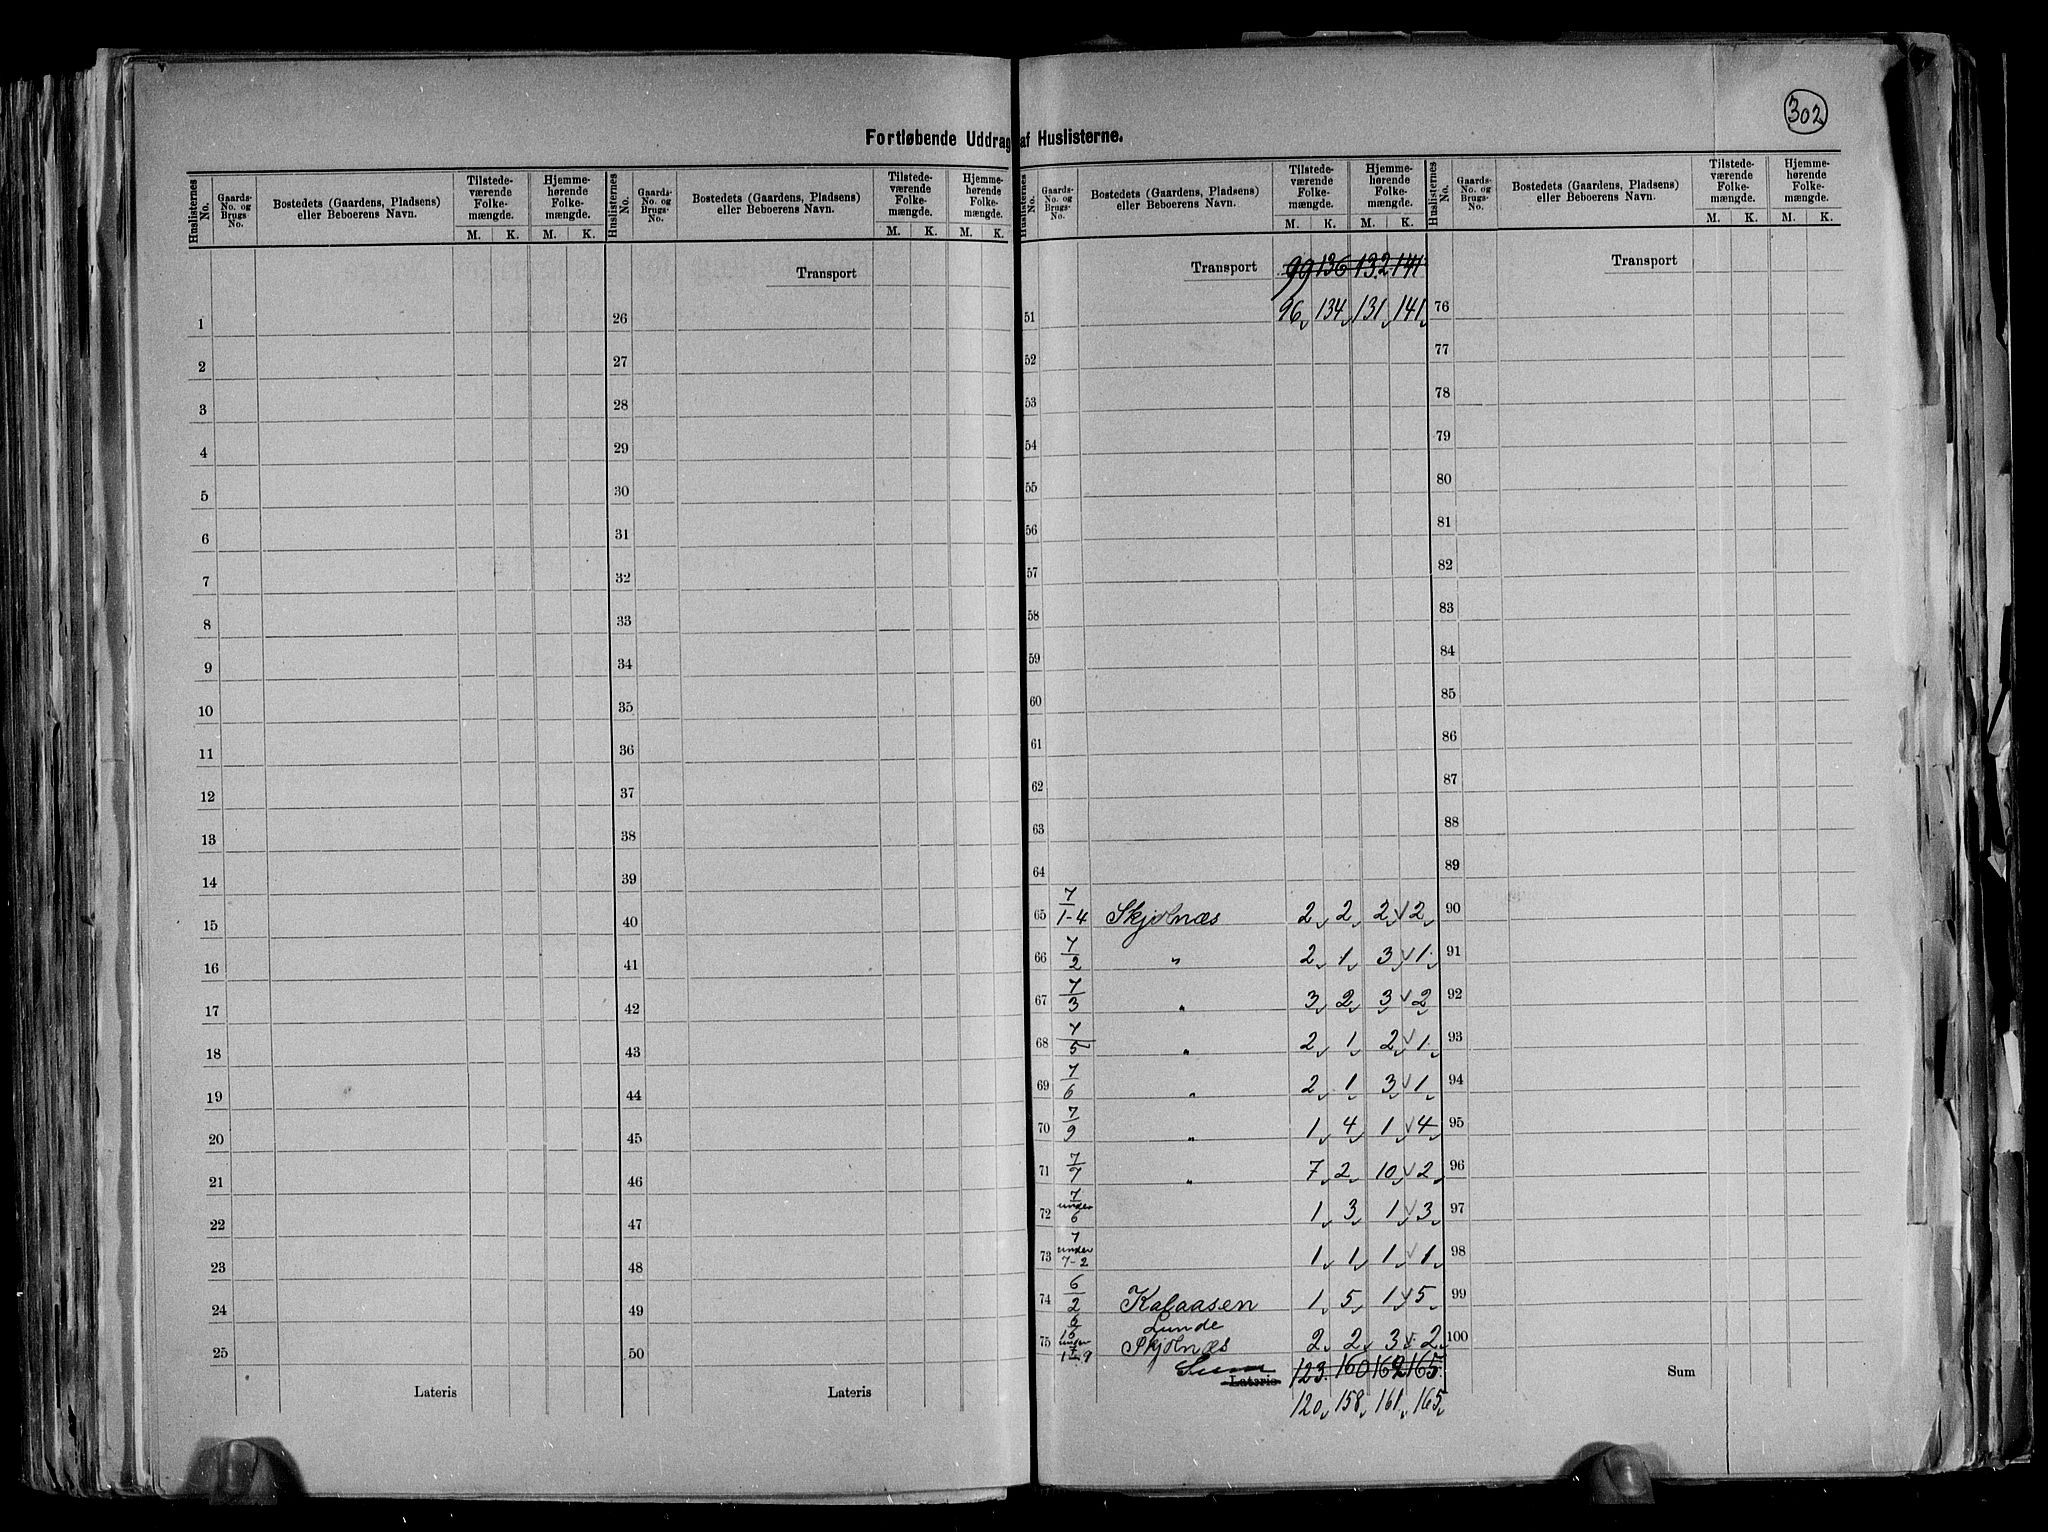 302
Fortløbende Uddrag af Huslisterne.
Huslisternes No. | Gaards-No. og Brugs-No. | Bostedets (Gaardens, Pladsens) eller Beboerens Navn. | Tilstede-værende Folke-mængde. M. K. | Hjemme-hørende Folke-mængde. M. K.
Huslisternes No. | Gaards-No. og Brugs-No. | Bostedets (Gaardens, Pladsens) eller Beboerens Navn. | Tilstede-værende Folke-mængde. M. K. | Hjemme-hørende Folke-mængde. M. K.
1
2
3
4
5
6
7
8
9
10
11
12
13
14
15
16
17
18
19
20
21
22
23
24
25
Lateris
Transport
26
27
28
29
30
31
32
33
34
35
36
37
38
39
40
41
42
43
44
45
46
47
48
49
50
Lateris
Huslisternes No. | Gaards-No. og Brugs-No. | Bostedets (Gaardens, Pladsens) eller Beboerens Navn. | Tilstede-værende Folke-mængde. M. K. | Hjemme-hørende Folke-mængde. M. K.
Huslisternes No. | Gaards-No. og Brugs-No. | Bostedets (Gaardens, Pladsens) eller Beboerens Navn. | Tilstede-værende Folke-mængde. M. K. | Hjemme-hørende Folke-mængde. M. K.
Transport 99 136 132 141
51 96 134 131 141
52
53
54
55
56
57
58
59
60
61
62
63
64
65 7/1-4 Skjolnæs 2 2 2 2
66 7/2 " 2 1 3 1
67 7/3 " 3 2 3 2
68 7/5 " 2 1 2 1
69 7/6 " 2 1 3 1
70 7/9 " 1 4 1 4
71 7/7 " 7 2 10 2
72 7 under 6 1 3 1 3
73 7 under 7-2 1 1 1 1
74 6/2 Kalaasen 1 5 1 5
Lunde
75 Skjolnæs 2 2 3 2
Sum Lateris 123 160 162 165
120 158 161 165
Transport
76
77
78
79
80
81
82
83
84
85
86
87
88
89
90
91
92
93
94
95
96
97
98
99
100
Sum